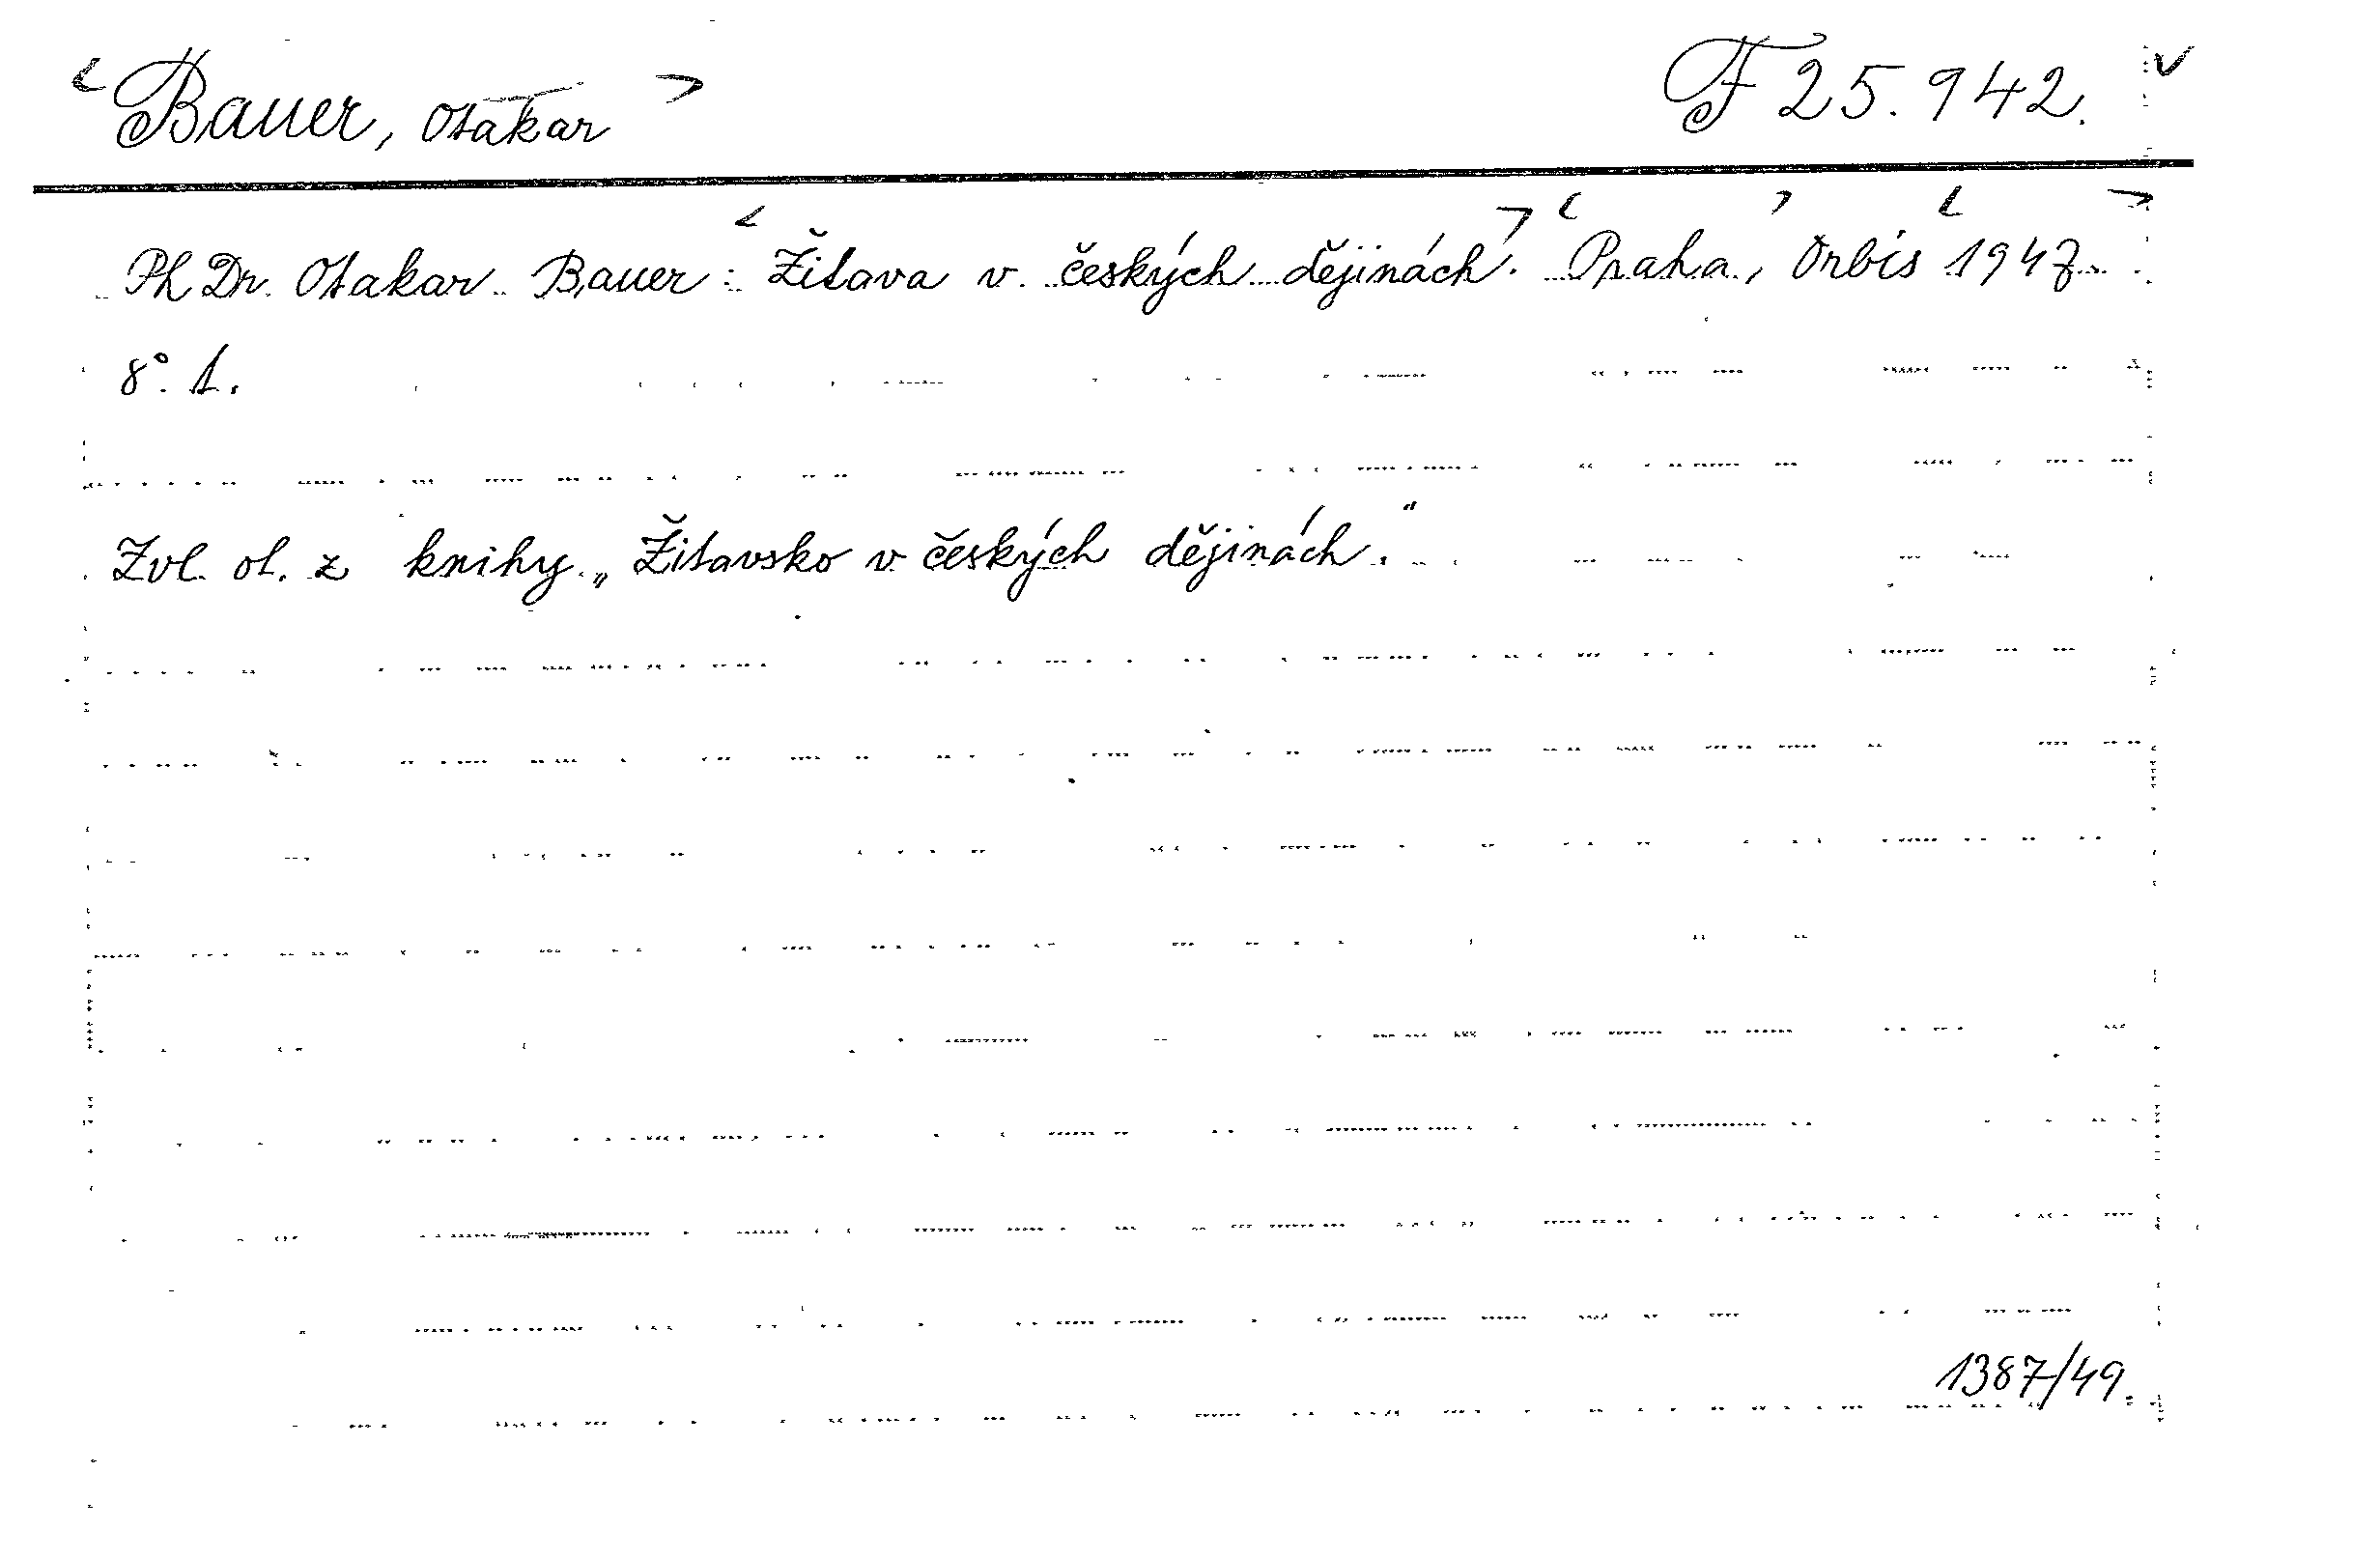 Bauer, Otakar F 25.942.
PhDr. Otakar Bauer: Žitava v českých dějinách. Praha, Orbis 1947
8°. 1.
Zvl. ot. z knihy „Žitavsko v českých dějinách."
1387/49.